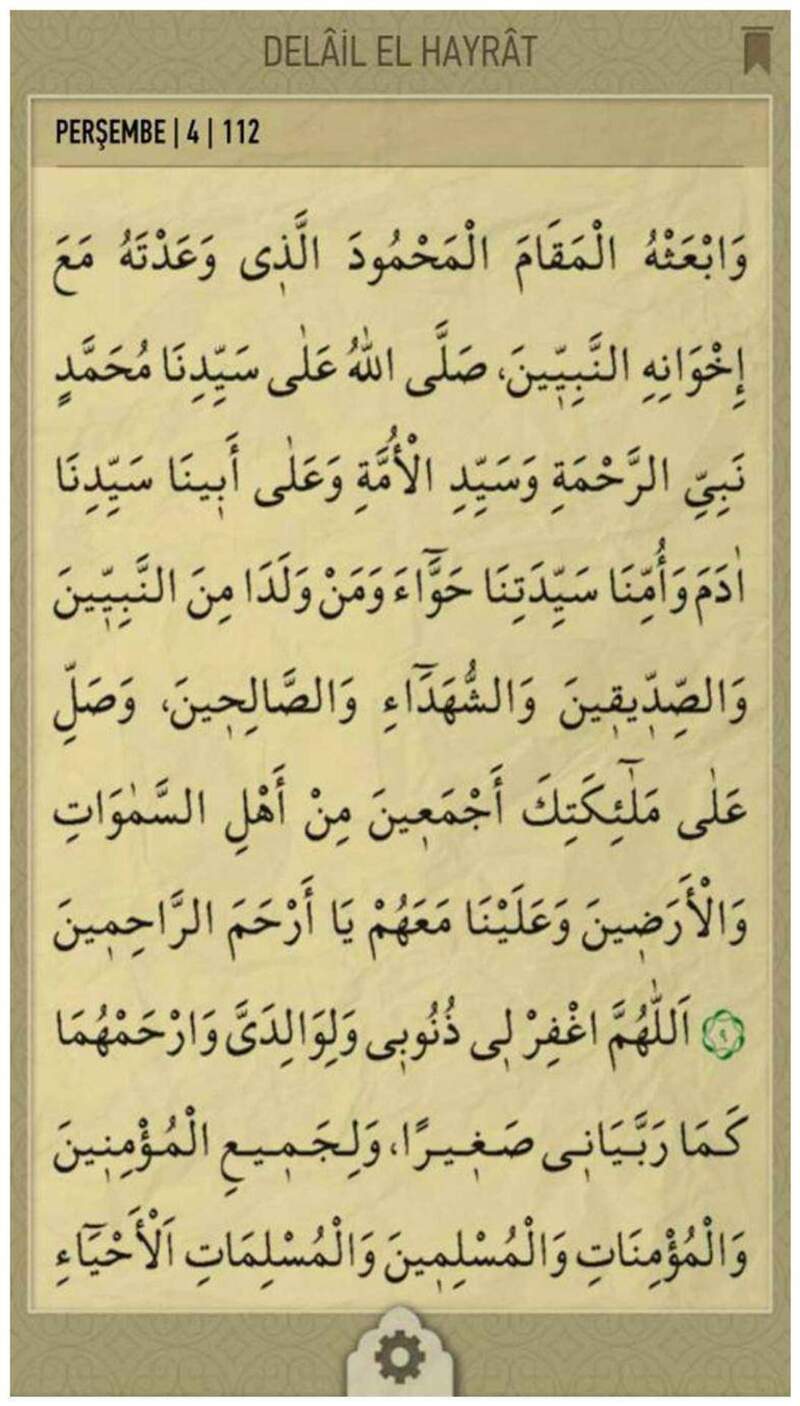 DELÂİL EL HAYRÂT
PERŞEMBE | 4 | 112
وَابْعَثْهُ الْمَقَامَ الْمَحْمُودَ الَّذٖى وَعَدْتَهُ مَعَ
إِخْوَانِهِ النَّبِيّٖينَ، صَلَّى اللهُ عَلٰى سَيِّدِنَا مُحَمَّدٍ
نَبِيِّ الرَّحْمَةِ وَسَيِّدِ الْأُمَّةِ وَعَلٰى أَبٖينَا سَيِّدِنَا
اٰدَمَ وَأُمِّنَا سَيِّدَتِنَا حَوَّٓاءَ وَمَنْ وَلَدَا مِنَ النَّبِيّٖينَ
وَالصِّدّٖيقٖينَ وَالشُّهَدَٓاءِ وَالصَّالِحٖينَ، وَصَلِّ
عَلٰى مَلٰٓئِكَتِكَ أَجْمَعٖينَ مِنْ أَهْلِ السَّمٰوَاتِ
وَالْأَرَضٖينَ وَعَلَيْنَا مَعَهُمْ يَا أَرْحَمَ الرَّاحِمٖينَ
٩ اَللّٰهُمَّ اغْفِرْ لٖى ذُنُوبٖى وَلِوَالِدَىَّ وَارْحَمْهُمَا
كَمَا رَبَّيَانٖى صَغٖيرًا، وَلِجَمٖيعِ الْمُؤْمِنٖينَ
وَالْمُؤْمِنَاتِ وَالْمُسْلِمٖينَ وَالْمُسْلِمَاتِ اَلْأَحْيَٓاءِ